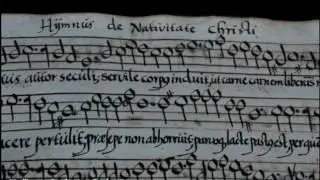 Hÿmnus de Nativitate Christi
tus autor seculi, servile corp9 induit, ut carne carnem liberans
acere pertulit, præsepe non abhorruit, parvoq; lacte past9 est, per quē